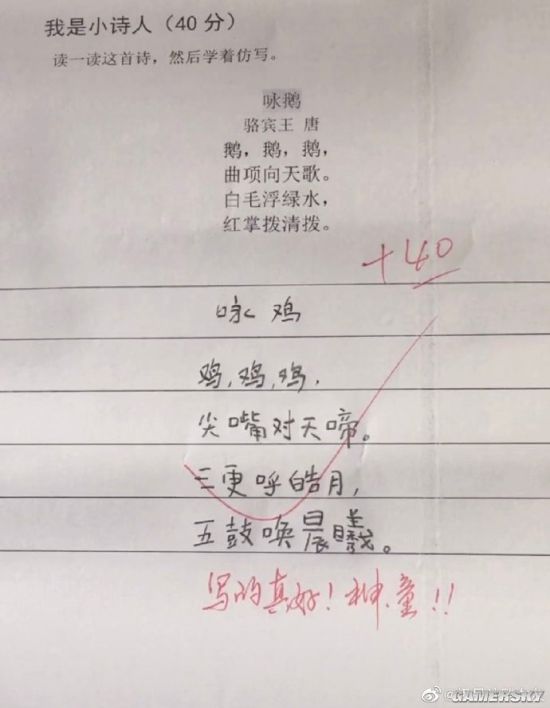 我是小诗人（40分）
读一读这首诗，然后学着仿写。
咏鹅
骆宾王 唐
鹅，鹅，鹅，
曲项向天歌。
白毛浮绿水，
红掌拨清拨。
+40
咏鸡
鸡，鸡，鸡，
尖嘴对天啼。
三更呼皓月，
五鼓唤晨曦。
写的真好！神童！！
GAMERSKY